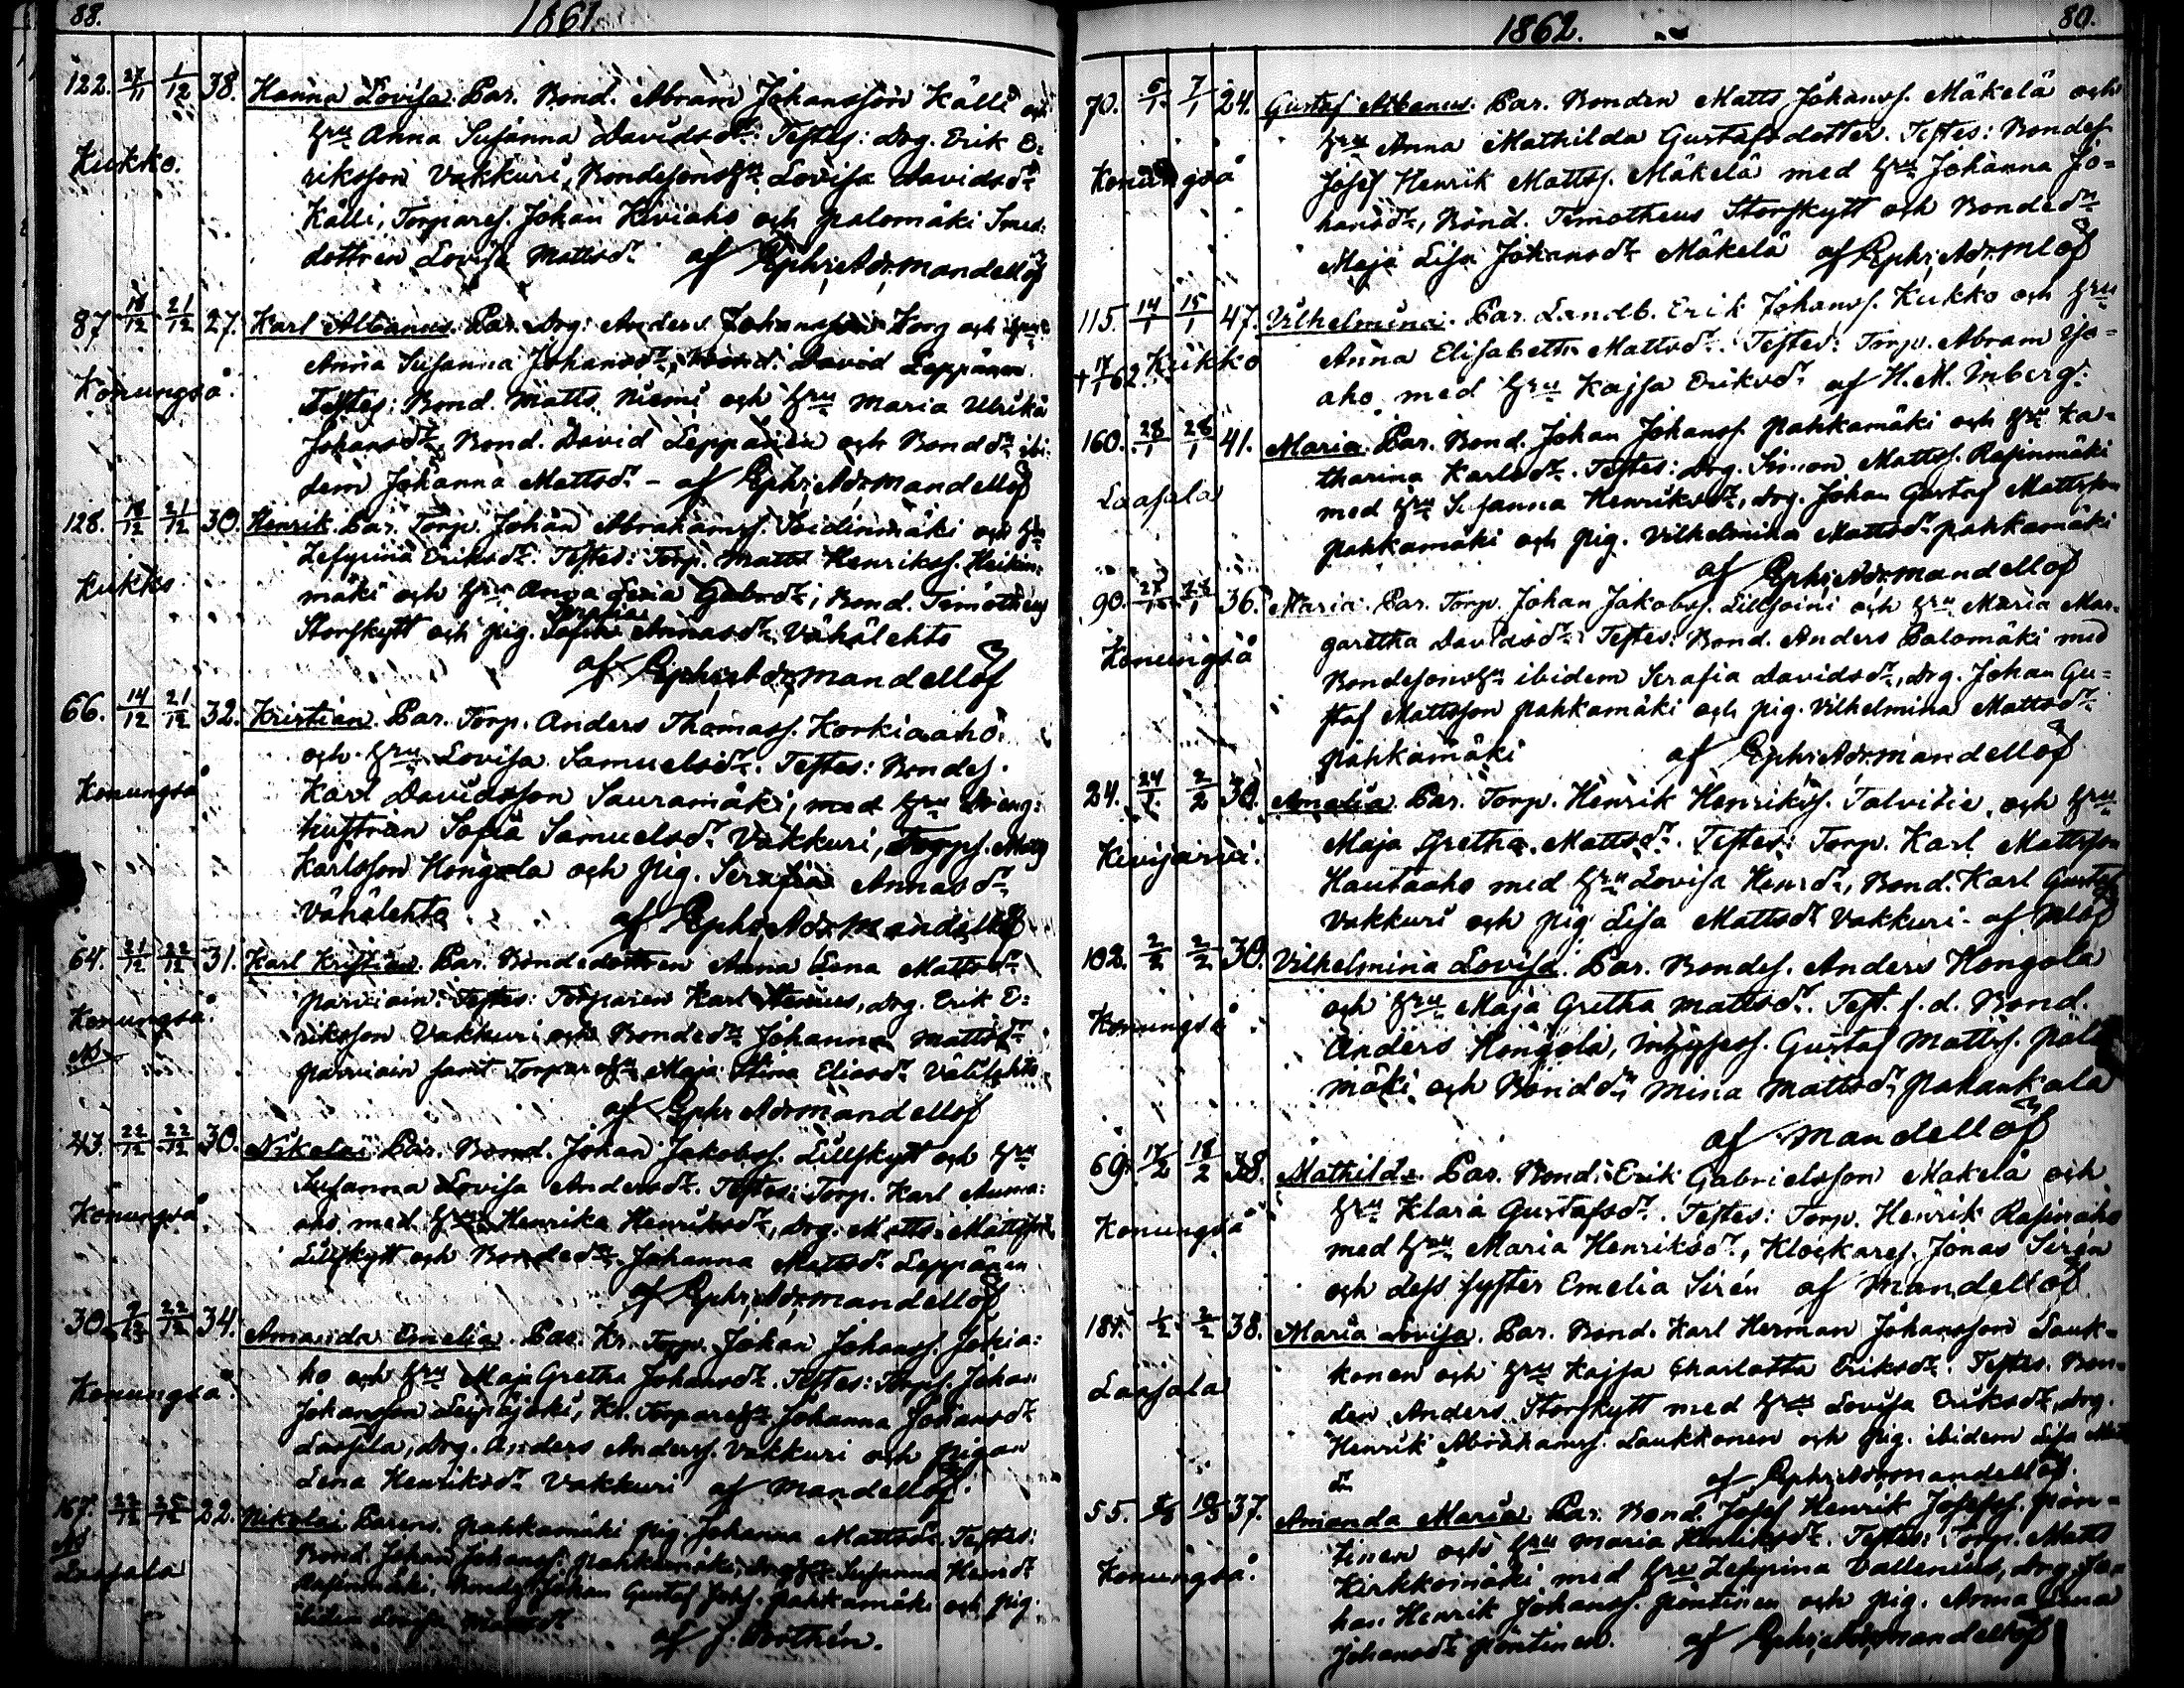 88.
1861.
122. 27/11 1/12 38. Hanna Lovisa. Par. Bond. Abram Johansson Källi och
hru Anna Susanna Davidsdr. Testes: Drg. Erik E=
Kukko.
riksson Vakkuri, Bondesonshu Lovisa Davidsdr
Källi, Torpares. Johan Kiviaho och Palomäki Smed.
dottren Lovisa Mattsdr af Ephr: Adr: Mandellöf
87. 18/12 21/12 27. Karl Albanus. Par. Drg. Anders Johansson Korg och hru
Anna Susanna Johansdr, Bond. David Leppänen.
Konungså.
Testes: Bond. Matts Niemi och hru Maria Ulrika
Johansdr, Bond. David Leppänen och Bonddr ibi-
dem Johanna Mattsdr - af Ephr: Adr: Mandellöf
128. 18/12 21/12 30. Henrik. Par. Torp. Johan Abrahamss. Soidinmäki och hru
Zefyrina Eriksdr. Testes: Torp. Matts Henrikss. Heikin=
Kukko
mäki och hru Anna Lena Gabrdr, Bond. Timotheus
Serafia
Storskytt och pig. Sofia Annasdr Vähälehto
af Ephr: Adr: Mandellöf
66. 14/12 21/12 32. Kristian. Par. Torp. Anders Thomass. Korkiaaho.
och hru Lovisa Samuelsdr. Testes: Bondes.
Konungså
Karl Davidsson Sauramäki, med hru Dreng=
hustrun Sofia Samuelsdr Vakkuri, Torps. Matts
Karlsson Hongola och pig. Serafia Annasdr
Vähälehto af Ephr: Adr: Mandellöf
64. 21/12 22/12 31. Karl Kristian. Par. Bondedottren Anna Lena Mattsdr
Parviain. Testes: Torparen Karl, Drg. Erik E=
Konungså.
riksson Vakkuri och Bondedr Johanna Mattsdr
Parviain samt Torparehu Maja Stina Eliasdr Välilehto
af Ephr Adr Mandellöf
43. 22/12 22/12 30. Nikolai. Par. Bond. Johan Jakobss. Lillskytt och hru
Susanna Lovisa Andersdr. Testes: Torp. Karl Auma=
Konungså
aho med hru Henrika Henriksdr, Drg. Matts Mattsson
Lillskytt och Bondedr Johanna Mattsdr Leppänen
af Ephr: Adr: Mandellöf
30. 22/12 34. Amanda Emelia. Par. Kr. Torp. Johan Johanss. Jokia=
ho och hru Maja Gretha Johansdr. Testes: Torps. Johan
Konungså.
Johansson Leinäjoki, Kr. Torparehu Johanna Johansdr
Lassila, Drg. Anders Anderss. Vakkuri och pigan
Lena Henriksdr Vakkuri af Mandellöf.
167. 22/12 25/12 22. Nikolai. Parens. Pahkamäki pig. Johanna Mattsdr. Testes:
Bond. Johan Johanss. Pahkamäki, Drghu Susanna Henrdr
Laasala
Rasinmäki, Bondes. Johan Gustaf Johs. Pahkamäki och pig.
ibidem Lovisa Mattsdr
af J. Bothén.
1862.
80.
70. 6/1 7/1 24. Gustaf Albanus. Par. Bonden Matts Johanss. Mäkelä och
hru Anna Mathilda Gustafsdotter. Testes: Bondes
Konungså
Josef Henrik Mattss. Mäkelä med hru Johanna Jo=
hansdr, Bond. Timotheus Storskytt och Bondedr
Maja Lisa Johansdr Mäkelä af Ephr: Adr: Mlöf
115. 14/1 15/1 47. Vilhelmina. Par. Landb. Erik Johanss. Kukko och hru
Anna Elisabeth Mattsdr. Testes: Torp. Abram Ojo=
Kukko
aho med hru Kajsa Eriksdr af H. M. Inberg.
160. 28/1 28/1 41. Maria. Par. Bond. Johan Johanss. Pahkamäki och hru Ka=
tharina Karlsdr. Testes: Drg. Simon Mattss. Rasinmäki
Laasala
med hru Susanna Henriksdr, Drg. Johan Gustaf Mattsson
Pahkamäki och pig. Vilhelmina Mattsdr Pahkamäki
af Ephr: Adr: Mandellöf
90. 36. Maria. Par. Torp. Johan Jakobss. Lillsoini och hru Maria Mar-
garetha Davidsdr. Testes: Bond. Anders Palomäki med
Konungså
Bondesonshu ibidem Serafia Davidsdr, Drg. Johan Gu=
staf Mattsson Pahkamäki och pig. Vilhelmina Mattsdr
Pahkamäki af Ephr: Adr: Mandellöf
24. 24/1 2/2 30. Amalia. Par. Torp. Henrik Henrikss. Talvitie och hru
Maja Gretha Mattsdr. Testes: Torp. Karl Mattsson
Kivijärvi.
Hautaaho med hru Lovisa Henrdr, Bond. Karl Gustaf
Vakkuri och pig Lisa Mattsdr Vakkuri. af Mlöf
102. 2/2 2/2 30. Vilhelmina Lovisa. Par. Bondes. Anders Hongola
och hru Maja Gretha Mattsdr. Test. f.d. Bond.
Konungså
Anders Hongola, Inhyses. Gustaf Mattss. Palo
mäki och Bonddr Mina Mattsdr Pahankala
af Mandellöf
69. 17/2 18/2 38. Mathilda. Par. Bond. Erik Gabrielsson Mäkelä och
hru Klara Gustafsdr. Testes: Torp. Henrik Rasinaho
Konungså
med hru Maria Henriksdr, Klockares. Jonas Sirén
och dess syster Emelia Sirén af Mandellöf
181. 1/2 2/2 38. Maria Lovisa. Par. Bond. Karl Herman Johansson Lauk=
konen och hru Kajsa Charlotta Eriksdr. Testes. Bon=
Laasala
den Anders Storskytt med hru Lovisa Eriksdr, Drg.
Henrik Abrahamss. Laukkonen och pig. ibidem Lisa Matts
dr af Ephr: Adr: Mandellöf.
55. 37. Amanda Maria. Par. Bond. Josef Henrik Josefss. Pön=
tinen och hru Maria Henriksdr. Testes: Torp. Matts
Konungså.
Kirkkomäki med hru Zefyrina Vallenius, Drg. Jo=
han Henrik Johanss. Pöntinen och pig. Anna Lena
Johansdr Pöntinen. af Ephr: Adr: Mandellöf